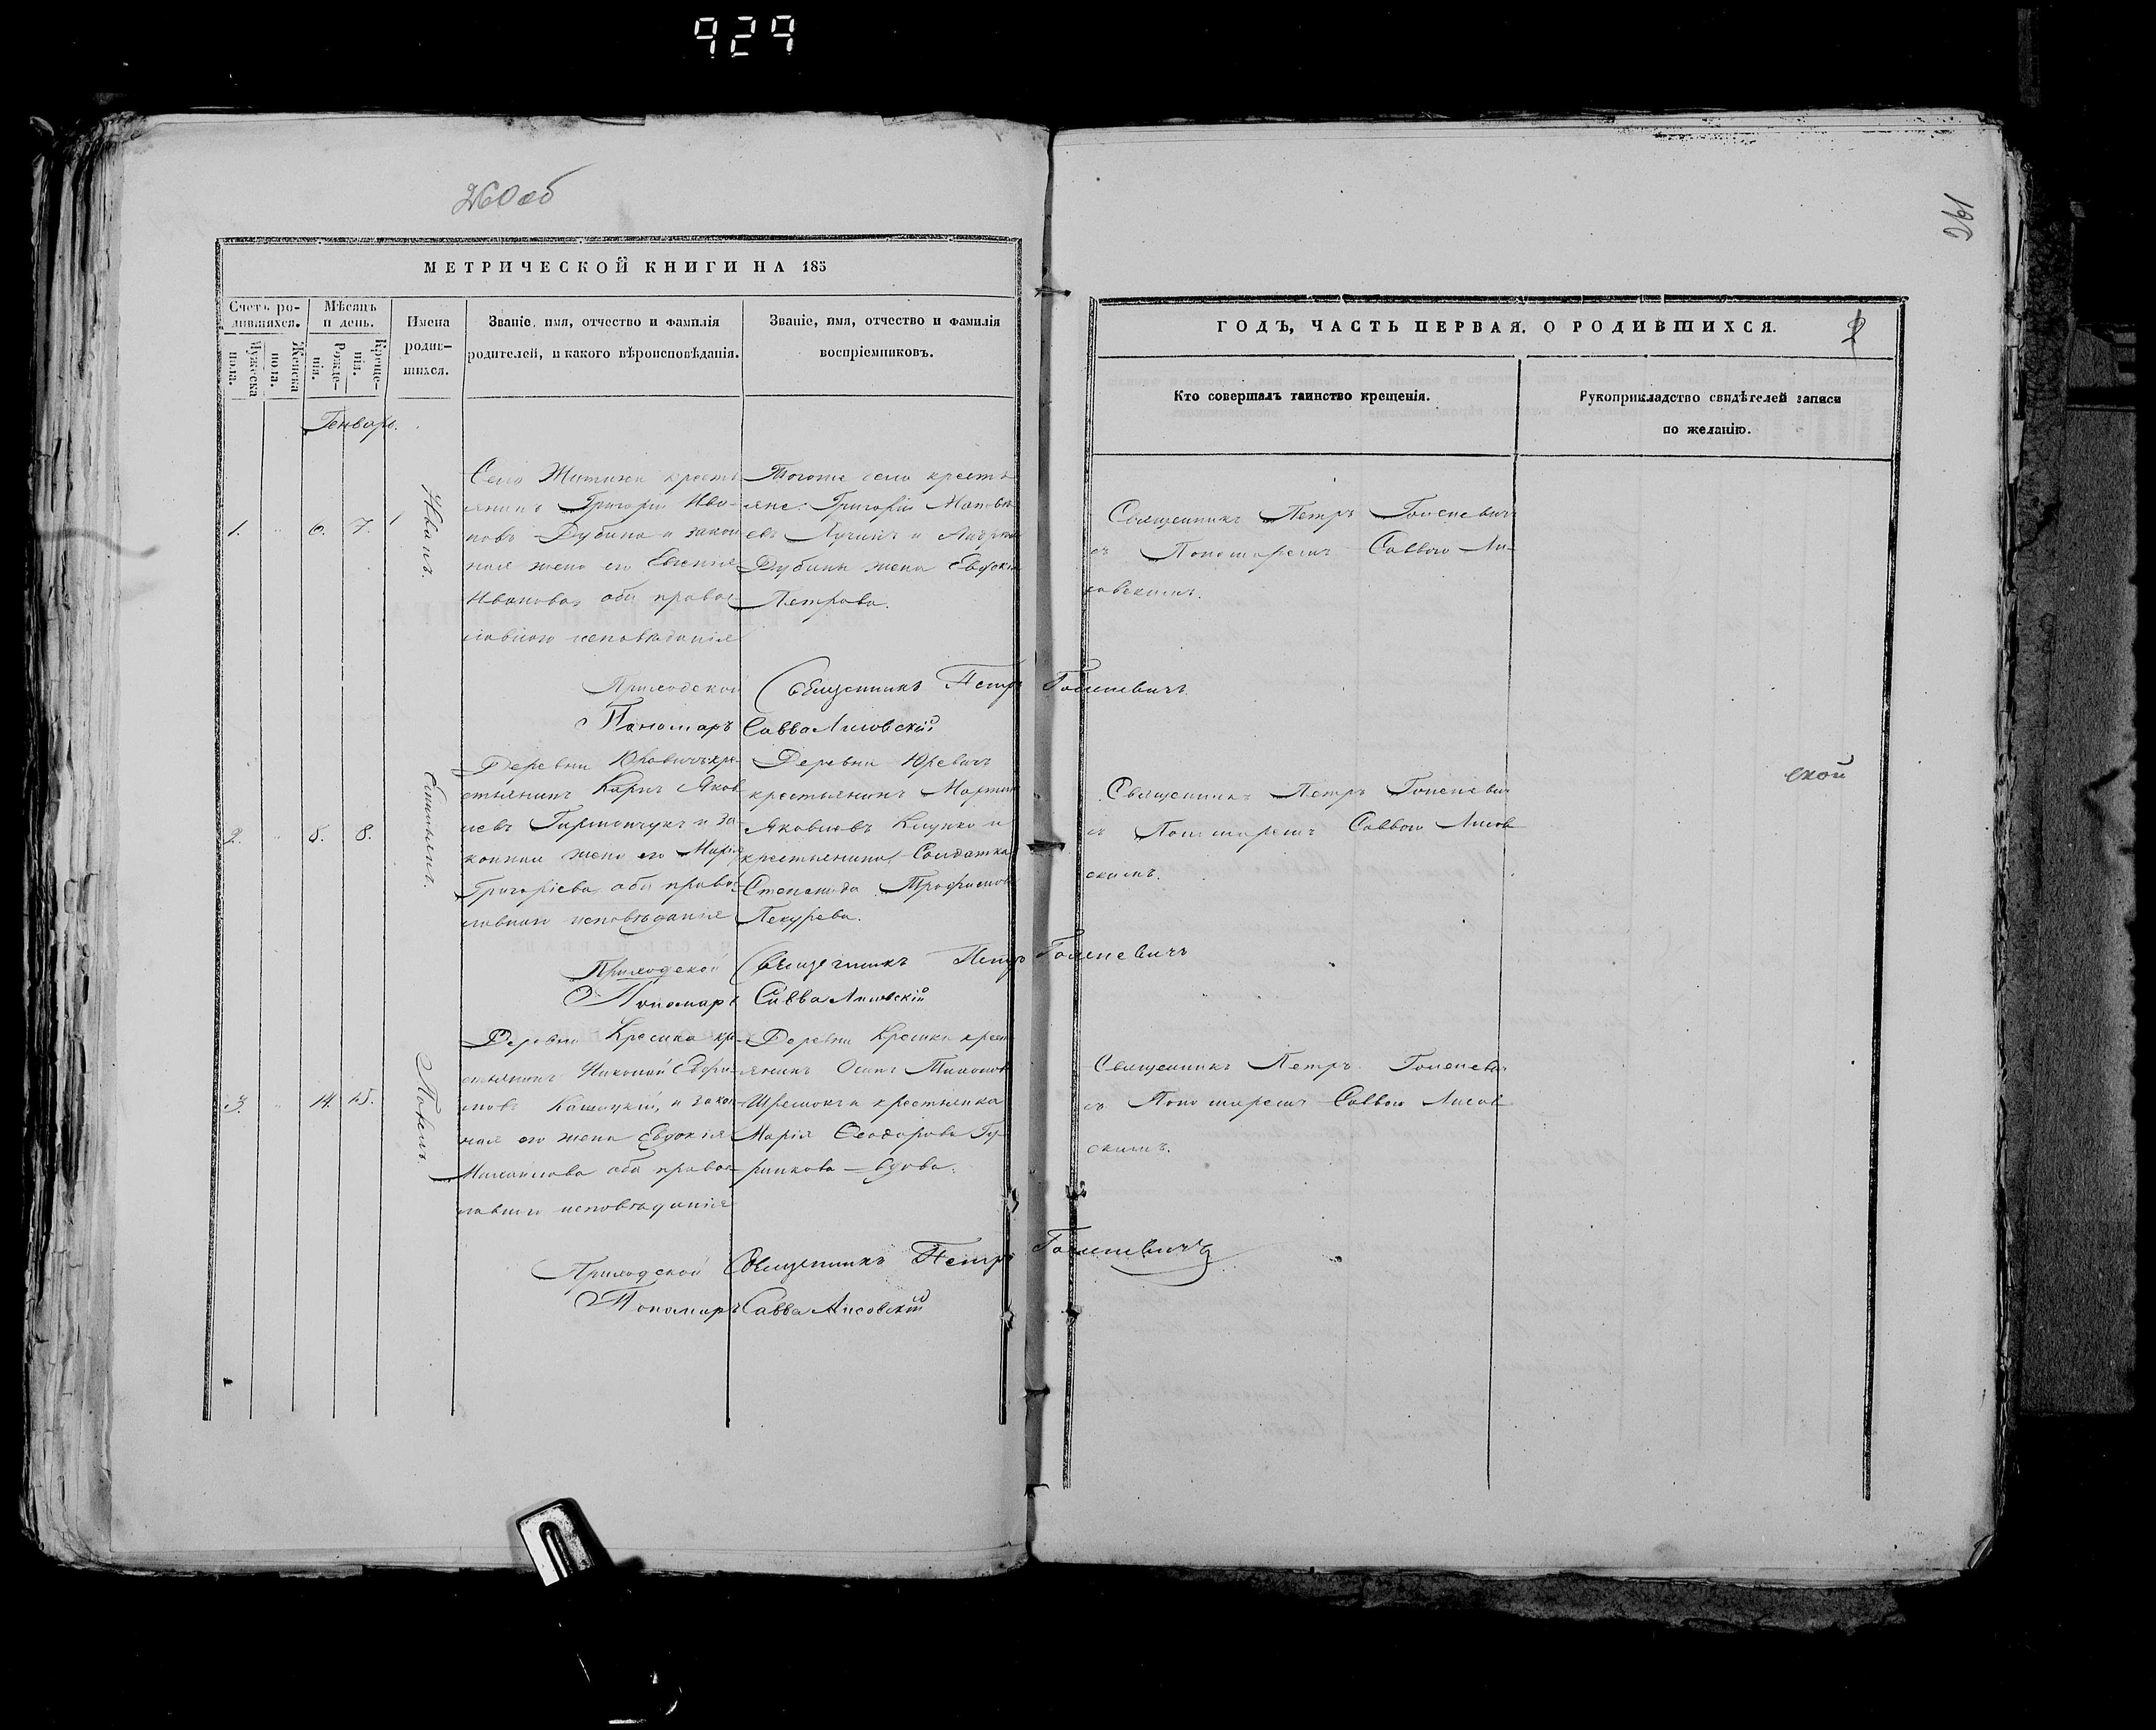 929
260 об
261
МЕТРИЧЕСКОЙ КНИГИ НА 185
Счетъ ро-
дившихся.
Мѣсяцъ
и день.
Имена
родив-
шихся.
Званіе, имя, отчество и фамилія
родителей, и какого вѣроисповѣданія.
Званіе, имя, отчество и фамилія
воспріемниковъ.
Мужеска
пола.
Женска
пола.
Рожде-
нія.
Креще-
нія.
Генварь.
1. 6. 7.
Иванъ.
Село Житинь кресть
янинъ Григорій Ива-
новъ Дубина и закон
ная жена его Евгенія
Иванова, оба правос
лавнаго исповѣданія
Тогоже села кресть
яне: Григорій Матвѣ
евъ и
Дубины жена Евдокія
Петрова.
Приходской Священникъ Петръ Голеневичъ
Пономарь Савва Лисовскій
2. 5. 8.
Емиліянъ.
Деревни Юревичъ кре-
стьянинъ Карпъ Яков
левъ и за-
конная жена его Марія
Григоріева, оба правос
лавнаго исповѣданія
Деревни Юревичъ
крестьянинъ Мартинъ
Яковлевъ и
крестьянина Солдатка
Степанида Трофимова
Приходской Священникъ Петръ Голеневичъ
Пономарь Савва Лисовскій
3. 14. 15.
Павелъ.
Деревни кре-
стьянинъ Николай
и закон-
ная его жена Евдокія
Михайлова оба правос
лавнаго исповѣданія
Деревни крест
янинъ Осипъ
и крестьянка
Марія Ѳеодорова
вдова.
Приходской Священникъ Петръ Голеневичъ
Пономарь Савва Лисовскій
ГОДЪ, ЧАСТЬ ПЕРВАЯ, О РОДИВШИХСЯ.
2
Кто совершалъ таинство крещенія.
Рукоприкладство свидѣтелей записи
по желанію.
Священникъ Петръ Голеневичъ
съ Пономаремъ Саввою Ли-
совскимъ.
ской
Священникъ Петръ Голеневичъ
съ Пономаремъ Саввою Лисов
скимъ.
Священникъ Петръ Голеневич
съ Пономаремъ Саввою Лисов
скимъ.